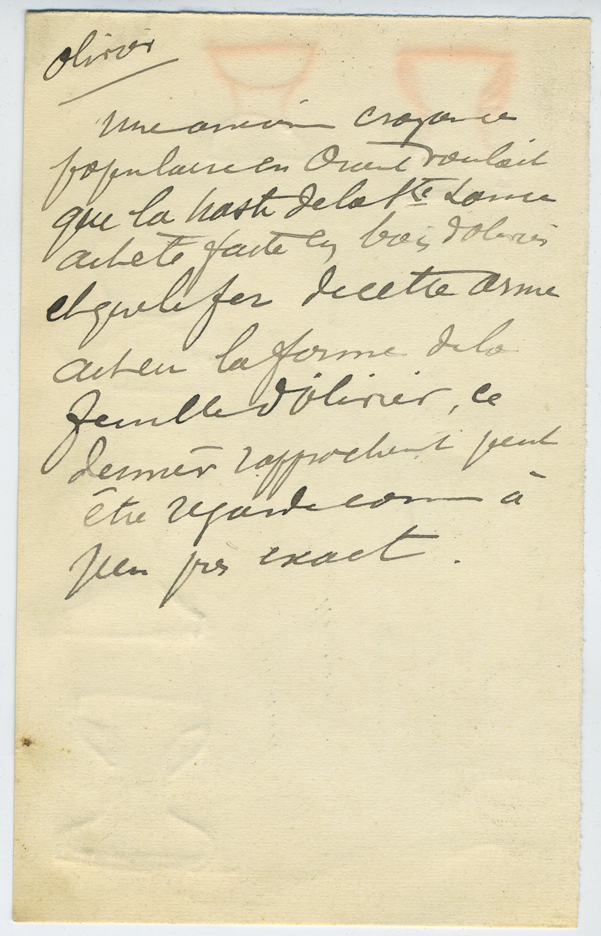 olivier
Une ancienne croyance
populaire en Orient voulait
que la haste de la Ste Lance
ait été faite en bois d'olivier
et que le fer de cette arme
ait eu la forme de la
feuille d'olivier, ce
dernier rapprochemt peut
être regardé comme à
peu près exact.